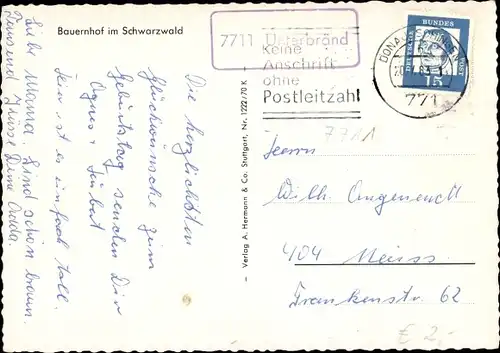 Bauernhof im Schwarzwald
7711 Unterbränd
Keine
Anschrift
ohne
Postleitzahl
DEUTSCHE BUNDESPOST
15
771
7711
Die herzlichsten
Glückwünsche zum
Geburtstag senden Dir
Agnes
Hier ist es einfach toll.
Liebe Mama. Sind schön braun.
Tausend Grüsse Deine
– Verlag A. Hermann & Co. Stuttgart, Nr. 1222/70 K –
Herrn
Wilh. Angenendt
404 Neuss
Frankenstr. 62
€ 2,-